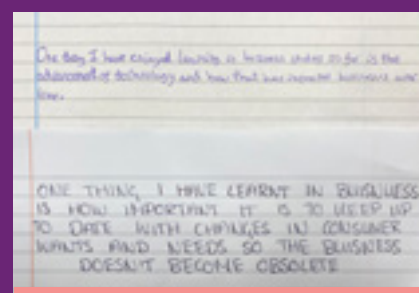 One thing I have enjoyed learning in business studies so far is the
advancement of technology and how that has business over
time.
ONE THING, I HAVE LEARNT IN BUISNUESS
IS HOW IMPORTANT IT IS TO KEEP UP
TO DATE WITH CHANGES IN CONSUMER
WANTS AND NEEDS SO THE BUISNESS
DOESN'T BECOME OBSOLETE